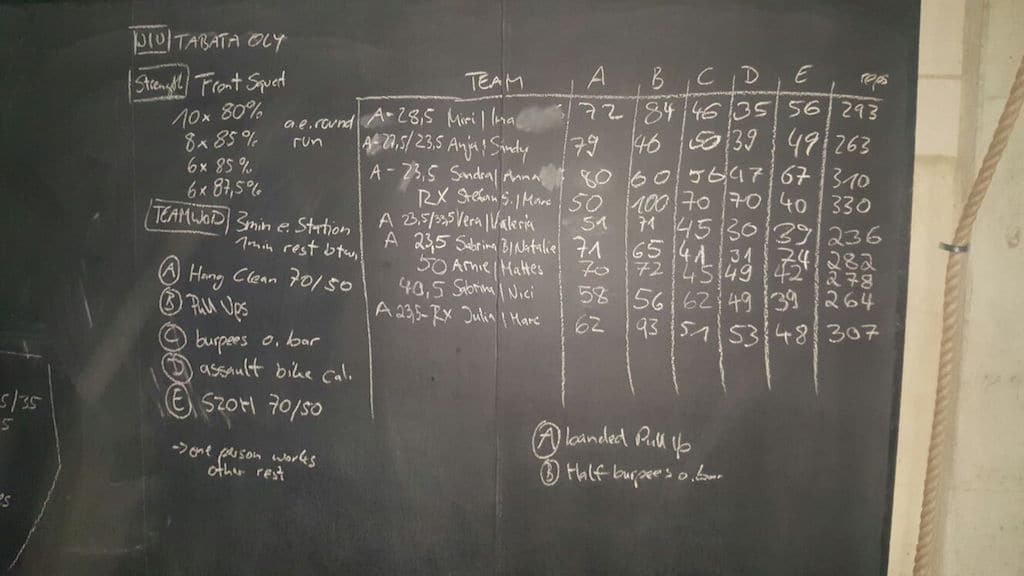 WU TABATA OLY
Strength Front Squat
10x 80%
8x 85%
6x 85%
6x 87,5%
a.e. round
run
TEAMWOD 3min e. Station
1min rest btw.
A Hang Clean 70/50
B Pull Ups
C burpees o. bar
D assault bike cali
E S2OH 70/50
→ one person works
other rest
TEAM A B C D E reps
A - 28,5 Miri / Ina 72 84 46 35 56 293
A - 23,5 Anja / Sandy 79 46 50 39 49 263
A - 23,5 Sandra / Anna 80 60 56 47 67 310
RX Stefan S. / Marc 50 100 70 70 40 330
A 23,5/33,5 Vera / Valeria 51 71 45 30 39 236
A 23,5 Sabrina B / Natalie 71 65 41 31 74 282
50 Arnie / Mattes 70 72 45 49 42 278
40,5 Sabrina / Nici 58 56 62 49 39 264
A 23,5-RX Julia / Marc 62 93 51 53 48 307
A banded Pull Up
B Half burpees o. bar
5/35
5